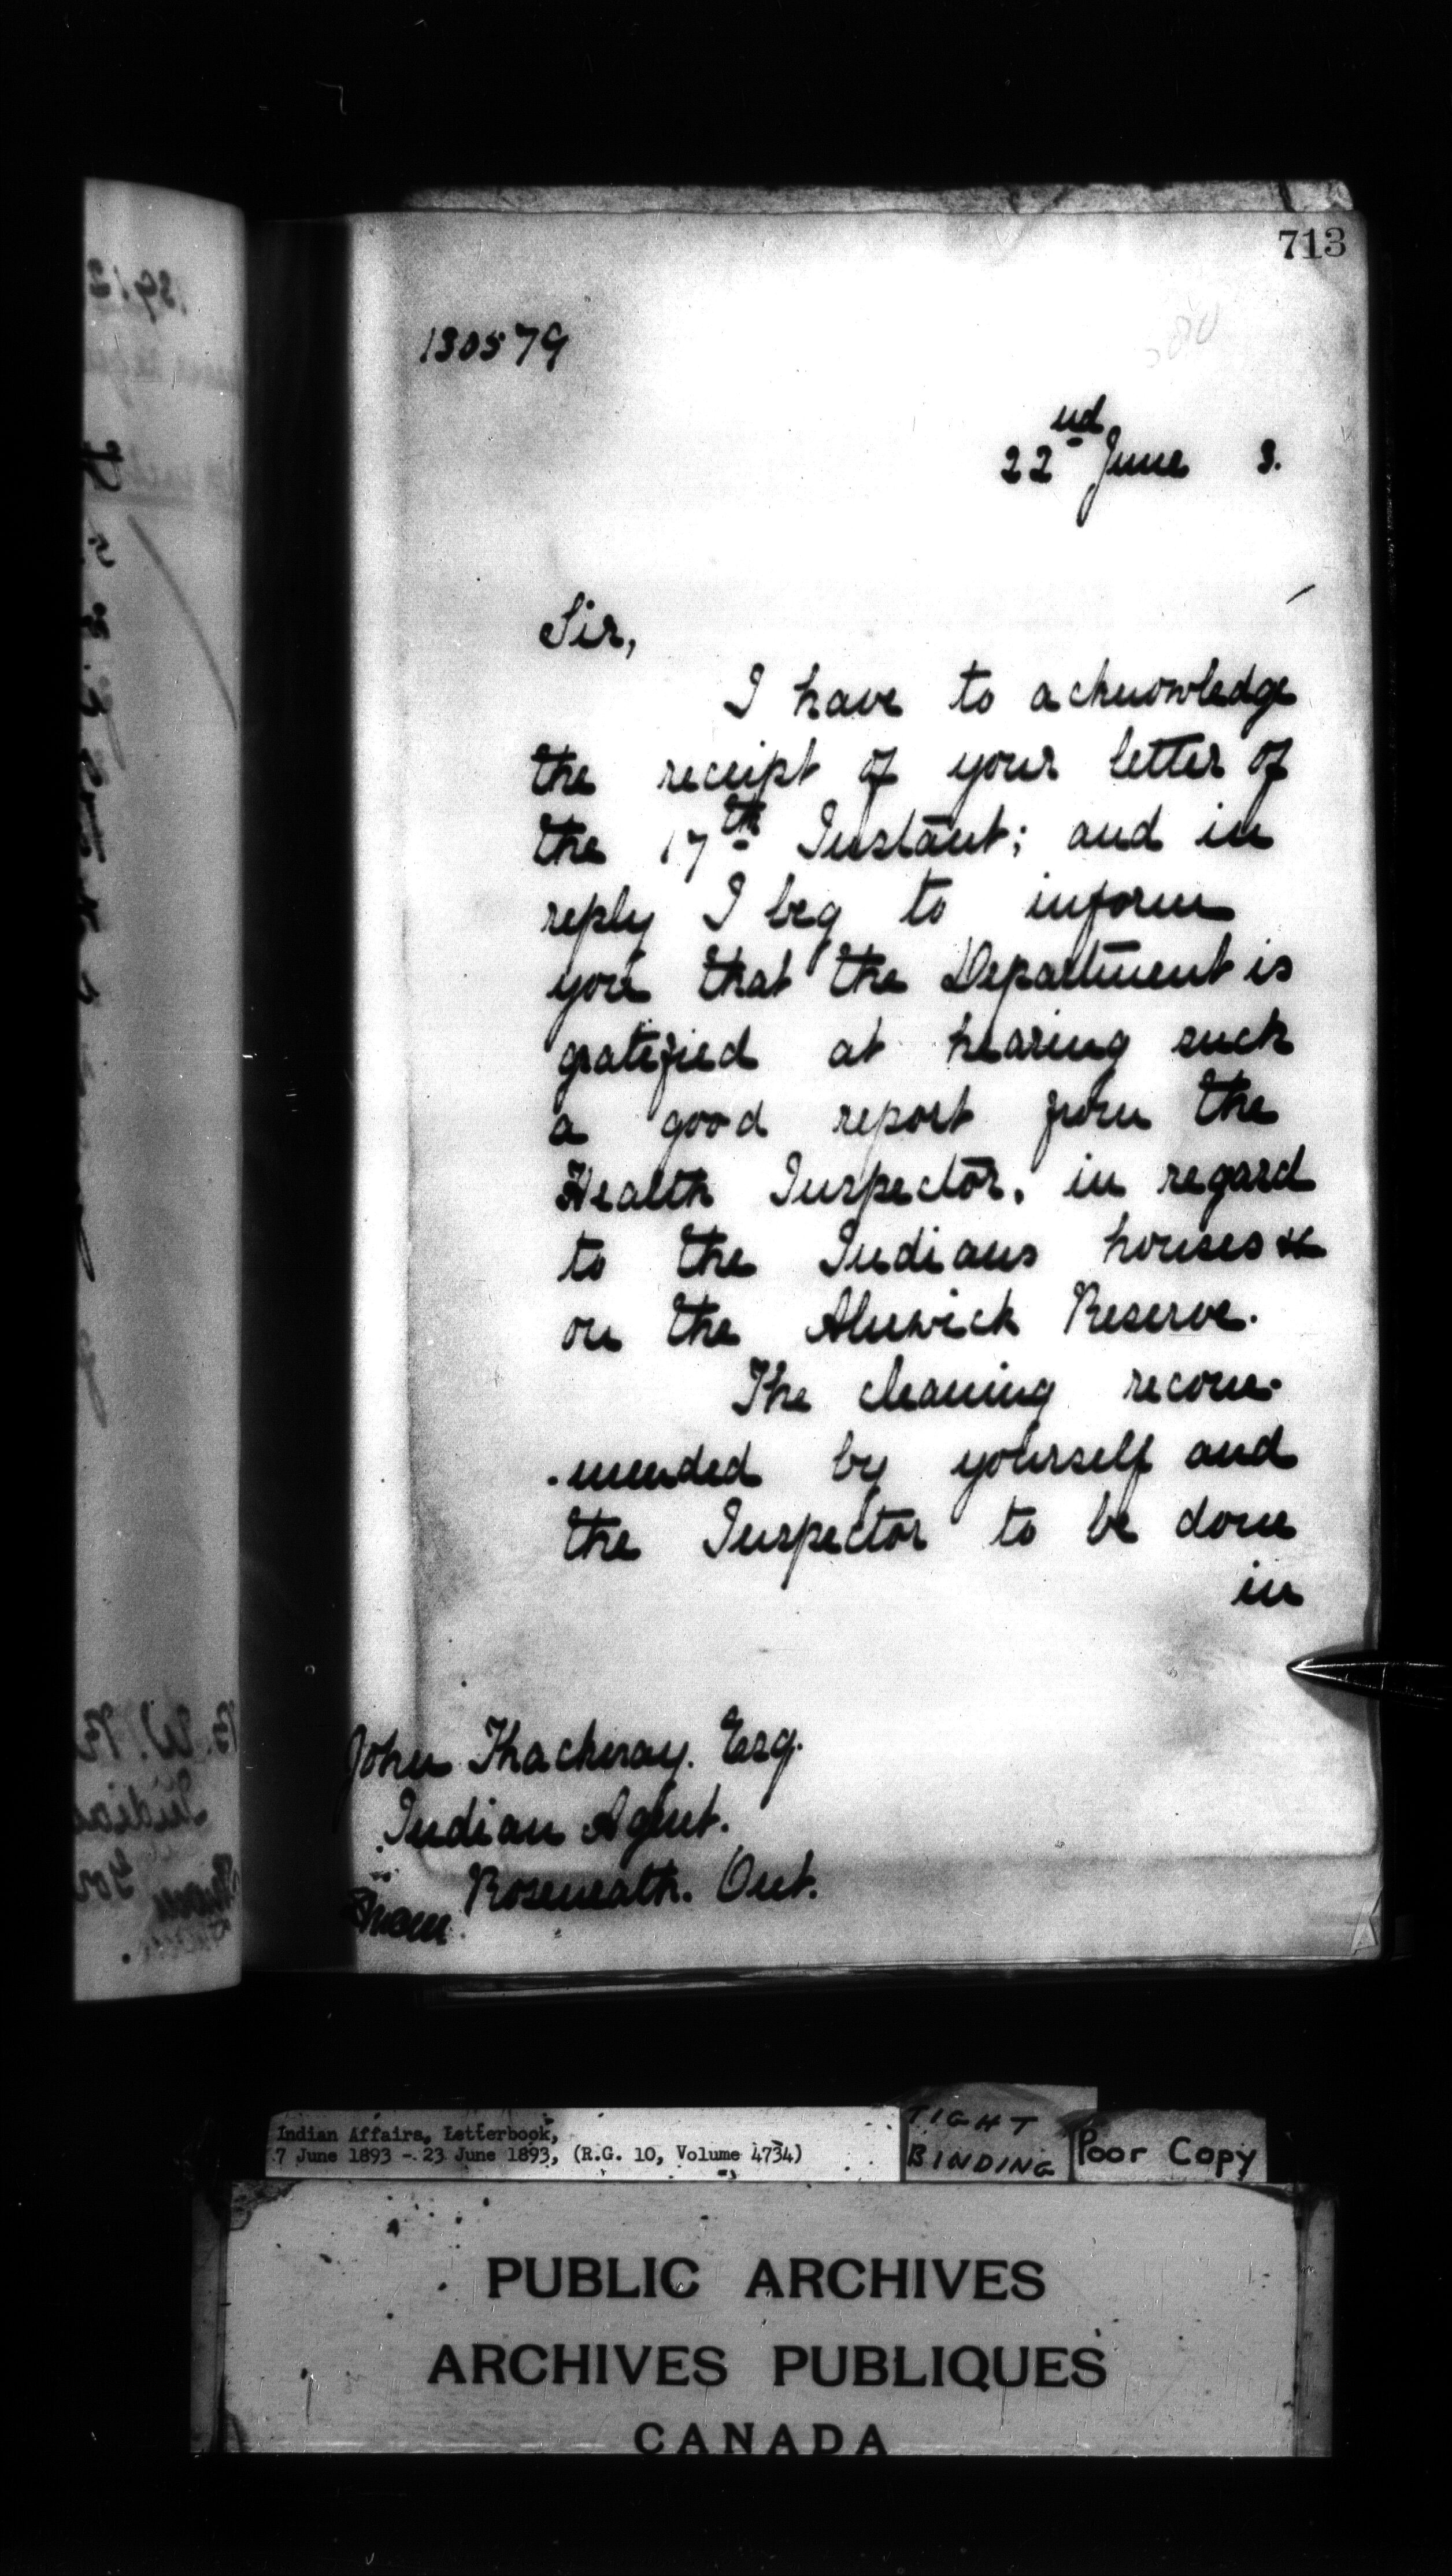 713
130579
22nd June 3.
Sir,
I have to acknowledge
the receipt of your letter of
the 17th Instant; and in
reply I beg to inform
you that the Department is
gratified at hearing such
a good report from the
Health Inspector, in regard
to the Indians houses &c
on the Alnwick Reserve.
The cleaning recom-
-mended by yourself and
the Inspector to be done
in
John Thackeray. Esq.
Indian Agent.
Roseneath. Ont.
Indian Affairs, Letterbook,
7 June 1893 - 23 June 1893, (R.G. 10, Volume 4734)
TIGHT
BINDING
Poor Copy
PUBLIC ARCHIVES
ARCHIVES PUBLIQUES
CANADA